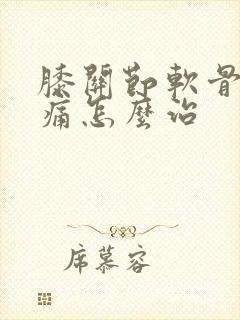 膝關節軟骨
痛怎麼治
席慕容